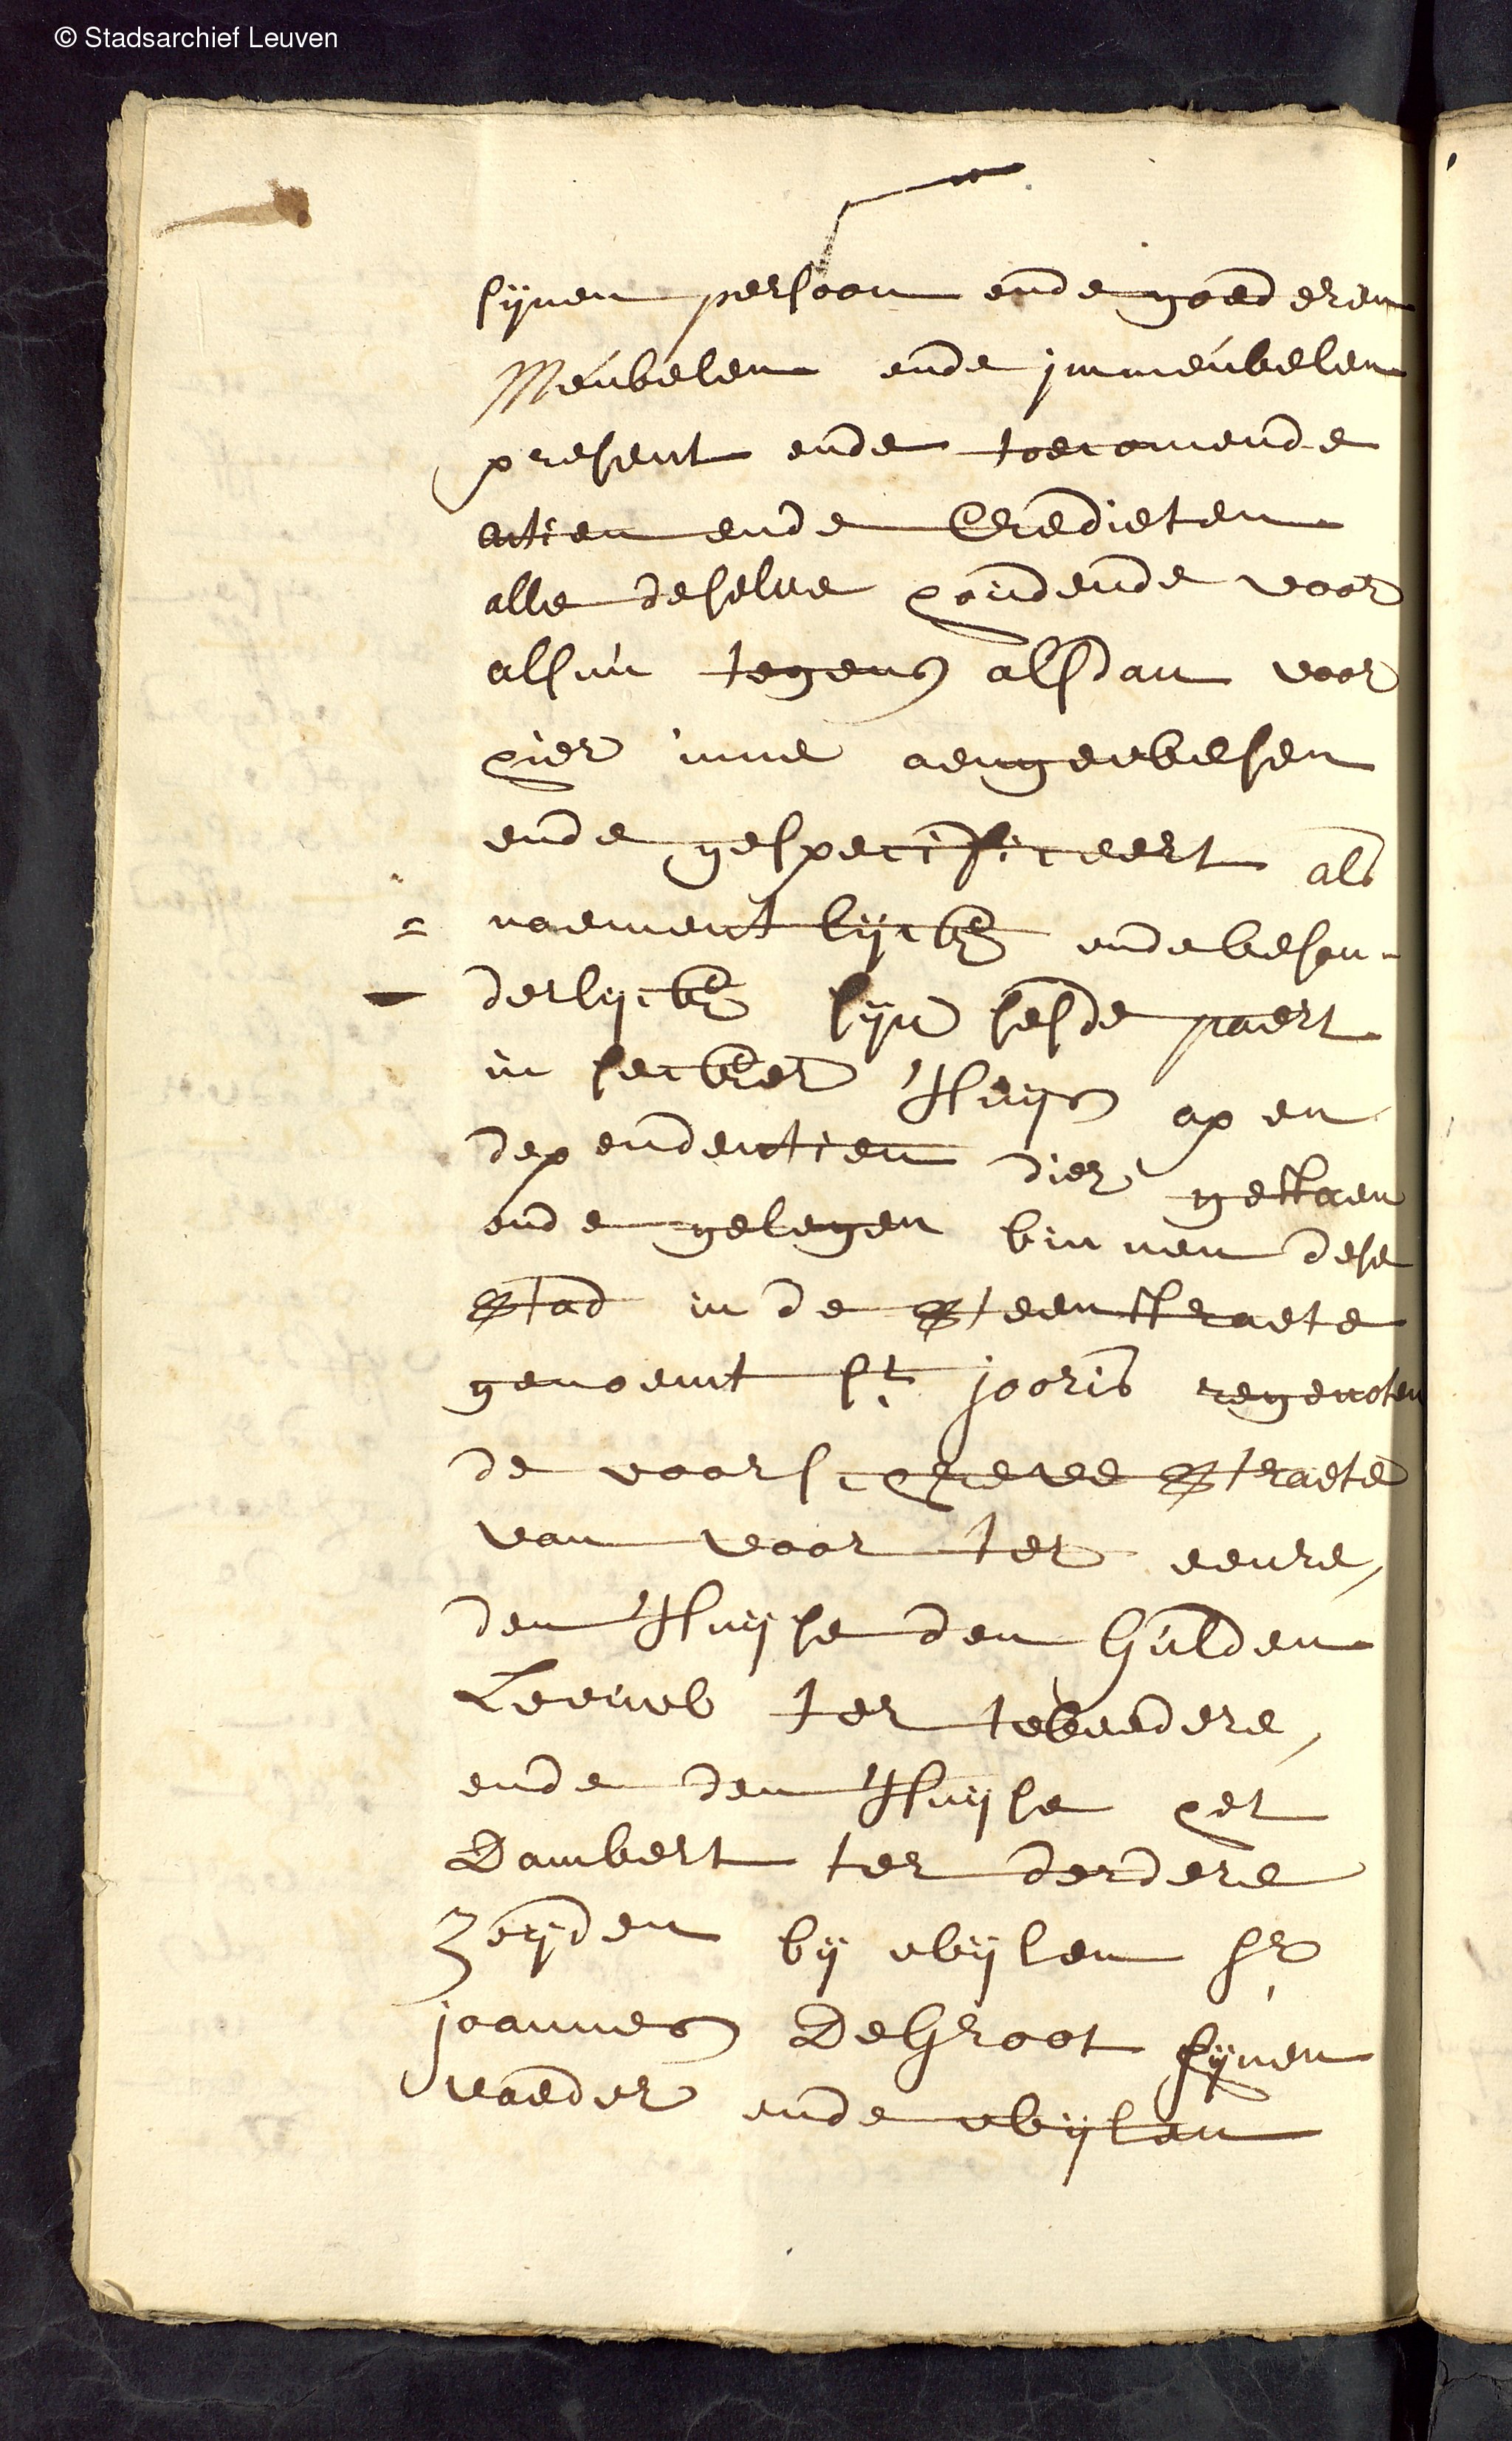 © Stadsarchief Leuven
sijnen persoon ende goederen
Meubelen ende immeubelen
present ende toecomende
actien ende Credieten
alle deselve houdende voor
alsnu tegens alsdan voor
hier inne aengewesen
ende gespecificeert als
naementlijcke ende beson-
derlijcke sijn sesde paert
in seecker Huijs ap en
dependentien dier gestaen
ende gelegen binnen dese
Stad in de Steenstraete
genoemt St. jooris regenoten
de voorschreve Straete
van voor ter eenre,
den Huijse den Gulden
Leeuw ter tweedere,
ende den Huijse het
Dambert ter derdere
Zeijden bij wijlen Sr
joannes De Groot sijnen
vaeder ende wijlen